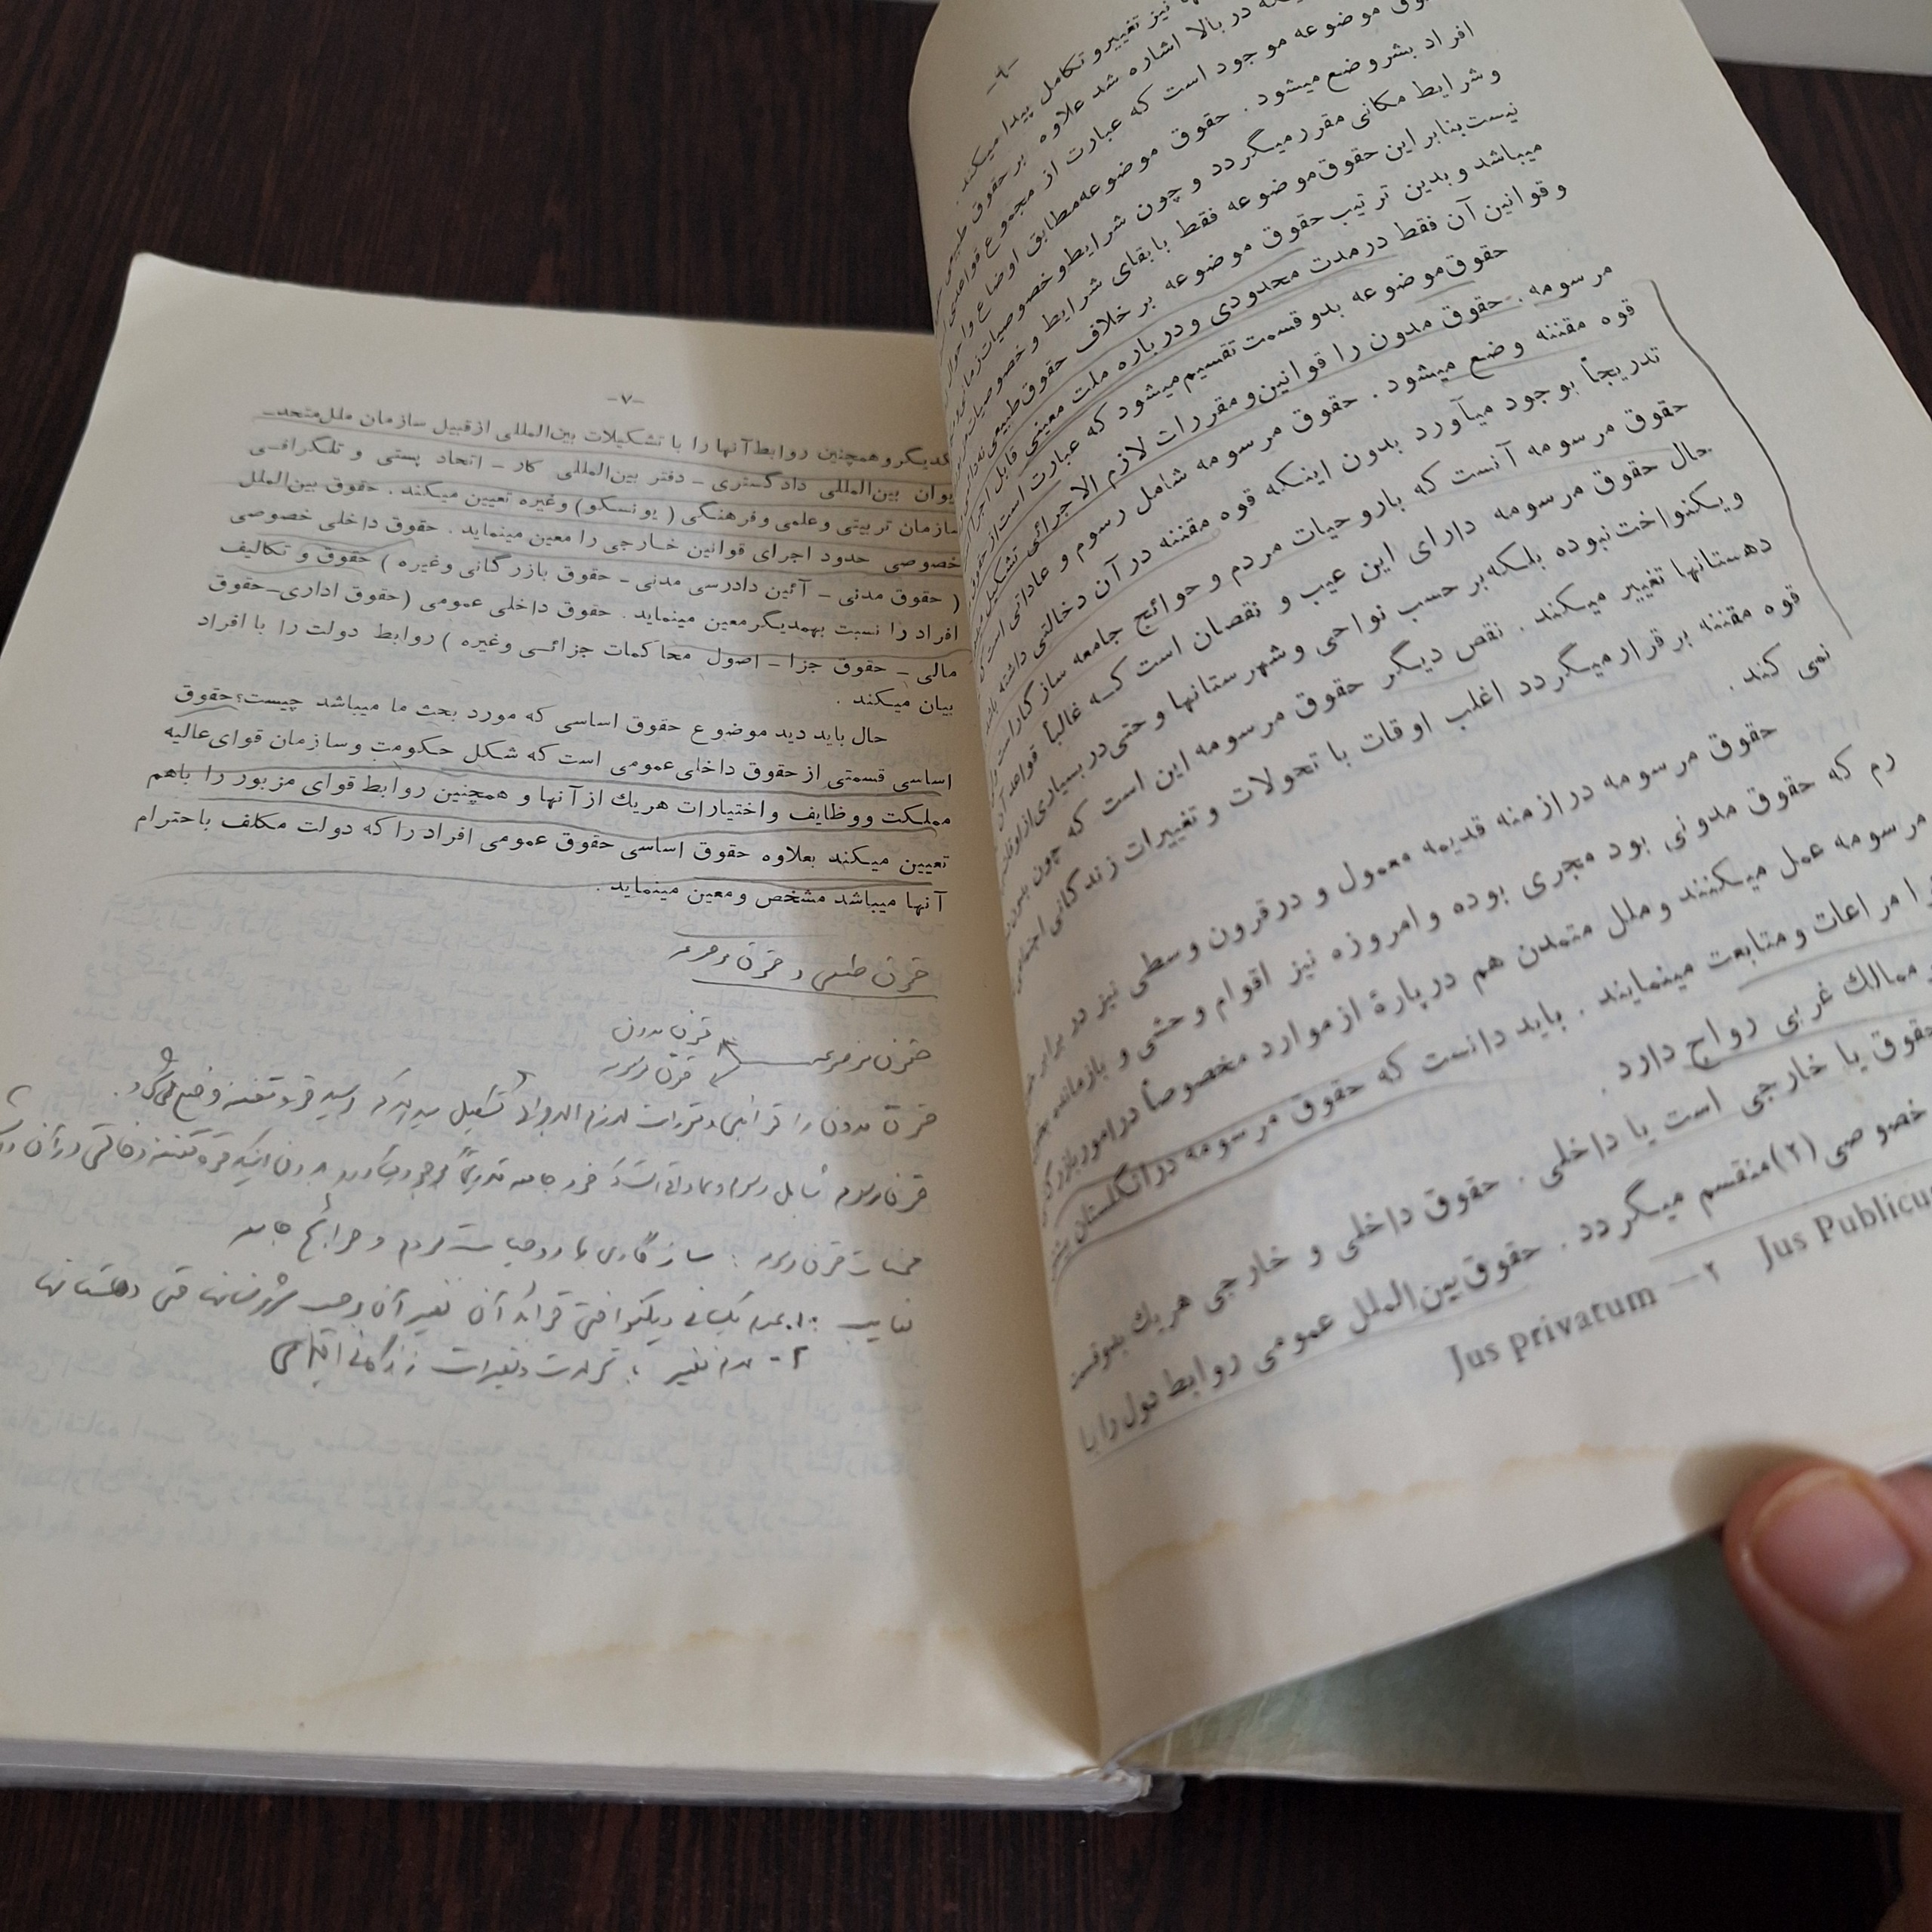 -٦-
نیز تغییر و تکامل پیدا میکند.
در بالا اشاره شد علاوه بر حقوق طبیعی
موضوعه موجود است که عبارت از مجموع قواعدی
افراد بشر وضع میشود . حقوق موضوعه مطابق اوضاع و احوال
و شرایط مکانی مقرر میگردد و چون شرایط و خصوصیات زمانی
نیست بنابر این حقوق موضوعه فقط با بقای شرایط و خصوصیات
میباشد و بدین ترتیب حقوق موضوعه بر خلاف حقوق طبیعی
و قوانین آن فقط در مدت محدودی و در باره ملت معینی قابل اجرا
حقوق موضوعه بدو قسمت تقسیم میشود که عبارت است از حقوق
مرسومه . حقوق مدون را قوانین و مقررات لازم الاجرائی تشکیل
قوه مقننه وضع میشود . حقوق مرسومه شامل رسوم و عاداتی است که
تدریجاً بوجود میآورد بدون اینکه قوه مقننه در آن دخالتی داشته باشد
حقوق مرسومه آنست که باروحیات مردم و حوائج جامعه سازگار است
حال حقوق مرسومه دارای این عیب و نقصان است که غالباً قواعد آن
ویکنواخت نبوده بلکه بر حسب نواحی و شهرستانها و حتی در بسیاری از اوقات
دهستانها تغییر میکند . نقص دیگر حقوق مرسومه این است که چون بدون
قوه مقننه برقرار میگردد اغلب اوقات با تحولات و تغییرات زندگانی اجتماعی
نمی کند .
حقوق مرسومه در ازمنه قدیمه معمول و در قرون وسطی نیز در برابر
رم که حقوق مدونی بود مجری بوده و امروزه نیز اقوام وحشی و بازمانده
مرسومه عمل میکنند و ملل متمدن هم در پارهٔ از موارد مخصوصاً در امور بازرگانی
را مراعات و متابعت مینمایند . باید دانست که حقوق مرسومه در انگلستان
ممالك غربی رواج دارد .
حقوق یا خارجی است یا داخلی . حقوق داخلی و خارجی هریك بدوقسمت
خصوصی (۲) منقسم میگردد . حقوق بین‌الملل عمومی روابط دول را با
Jus privatum — ۲ Jus Publicu
-۷-
یکدیگر و همچنین روابط آنها را با تشکیلات بین‌المللی از قبیل سازمان ملل متحد-
دیوان بین‌المللی دادگستری - دفتر بین‌المللی کار - اتحاد پستی و تلگرافی
سازمان تربیتی و علمی و فرهنگی ( یونسکو ) وغیره تعیین میکند . حقوق بین‌الملل
خصوصی حدود اجرای قوانین خارجی را معین مینماید . حقوق داخلی خصوصی
( حقوق مدنی - آئین دادرسی مدنی - حقوق بازرگانی وغیره ) حقوق و تکالیف
افراد را نسبت بهمدیگر معین مینماید . حقوق داخلی عمومی (حقوق اداری-حقوق
مالی - حقوق جزا - اصول محاکمات جزائی وغیره ) روابط دولت را با افراد
بیان میکند .
حال باید دید موضوع حقوق اساسی که مورد بحث ما میباشد چیست؟ حقوق
اساسی قسمتی از حقوق داخلی عمومی است که شکل حکومت و سازمان قوای عالیه
مملکت و وظایف و اختیارات هریك از آنها و همچنین روابط قوای مزبور را باهم
تعیین میکند بعلاوه حقوق اساسی حقوق عمومی افراد را که دولت مکلف باحترام
آنها میباشد مشخص و معین مینماید .
حقوق طبیعی و حقوق موضوعه
حقوق مدون
حقوق موضوعه
حقوق مرسومه
حقوق مدون را قوانین و مقررات لازم الاجرائی تشکیل میدهد که توسط قوه مقننه وضع میگردد.
حقوق مرسومه شامل رسوم و عاداتی است که خود جامعه تدریجاً بوجود میآورد بدون اینکه قوه مقننه دخالتی در آن
محسنات حقوق مرسومه : سازگاری با روحیات مردم و حوائج جامعه
معایب : ۱- عدم یکسانی ویکنواختی قواعد آن تغییر آن برحسب شهرستانها حتی دهستانها
۲- عدم تغییر با تحولات و تغییرات زندگانی اجتماعی